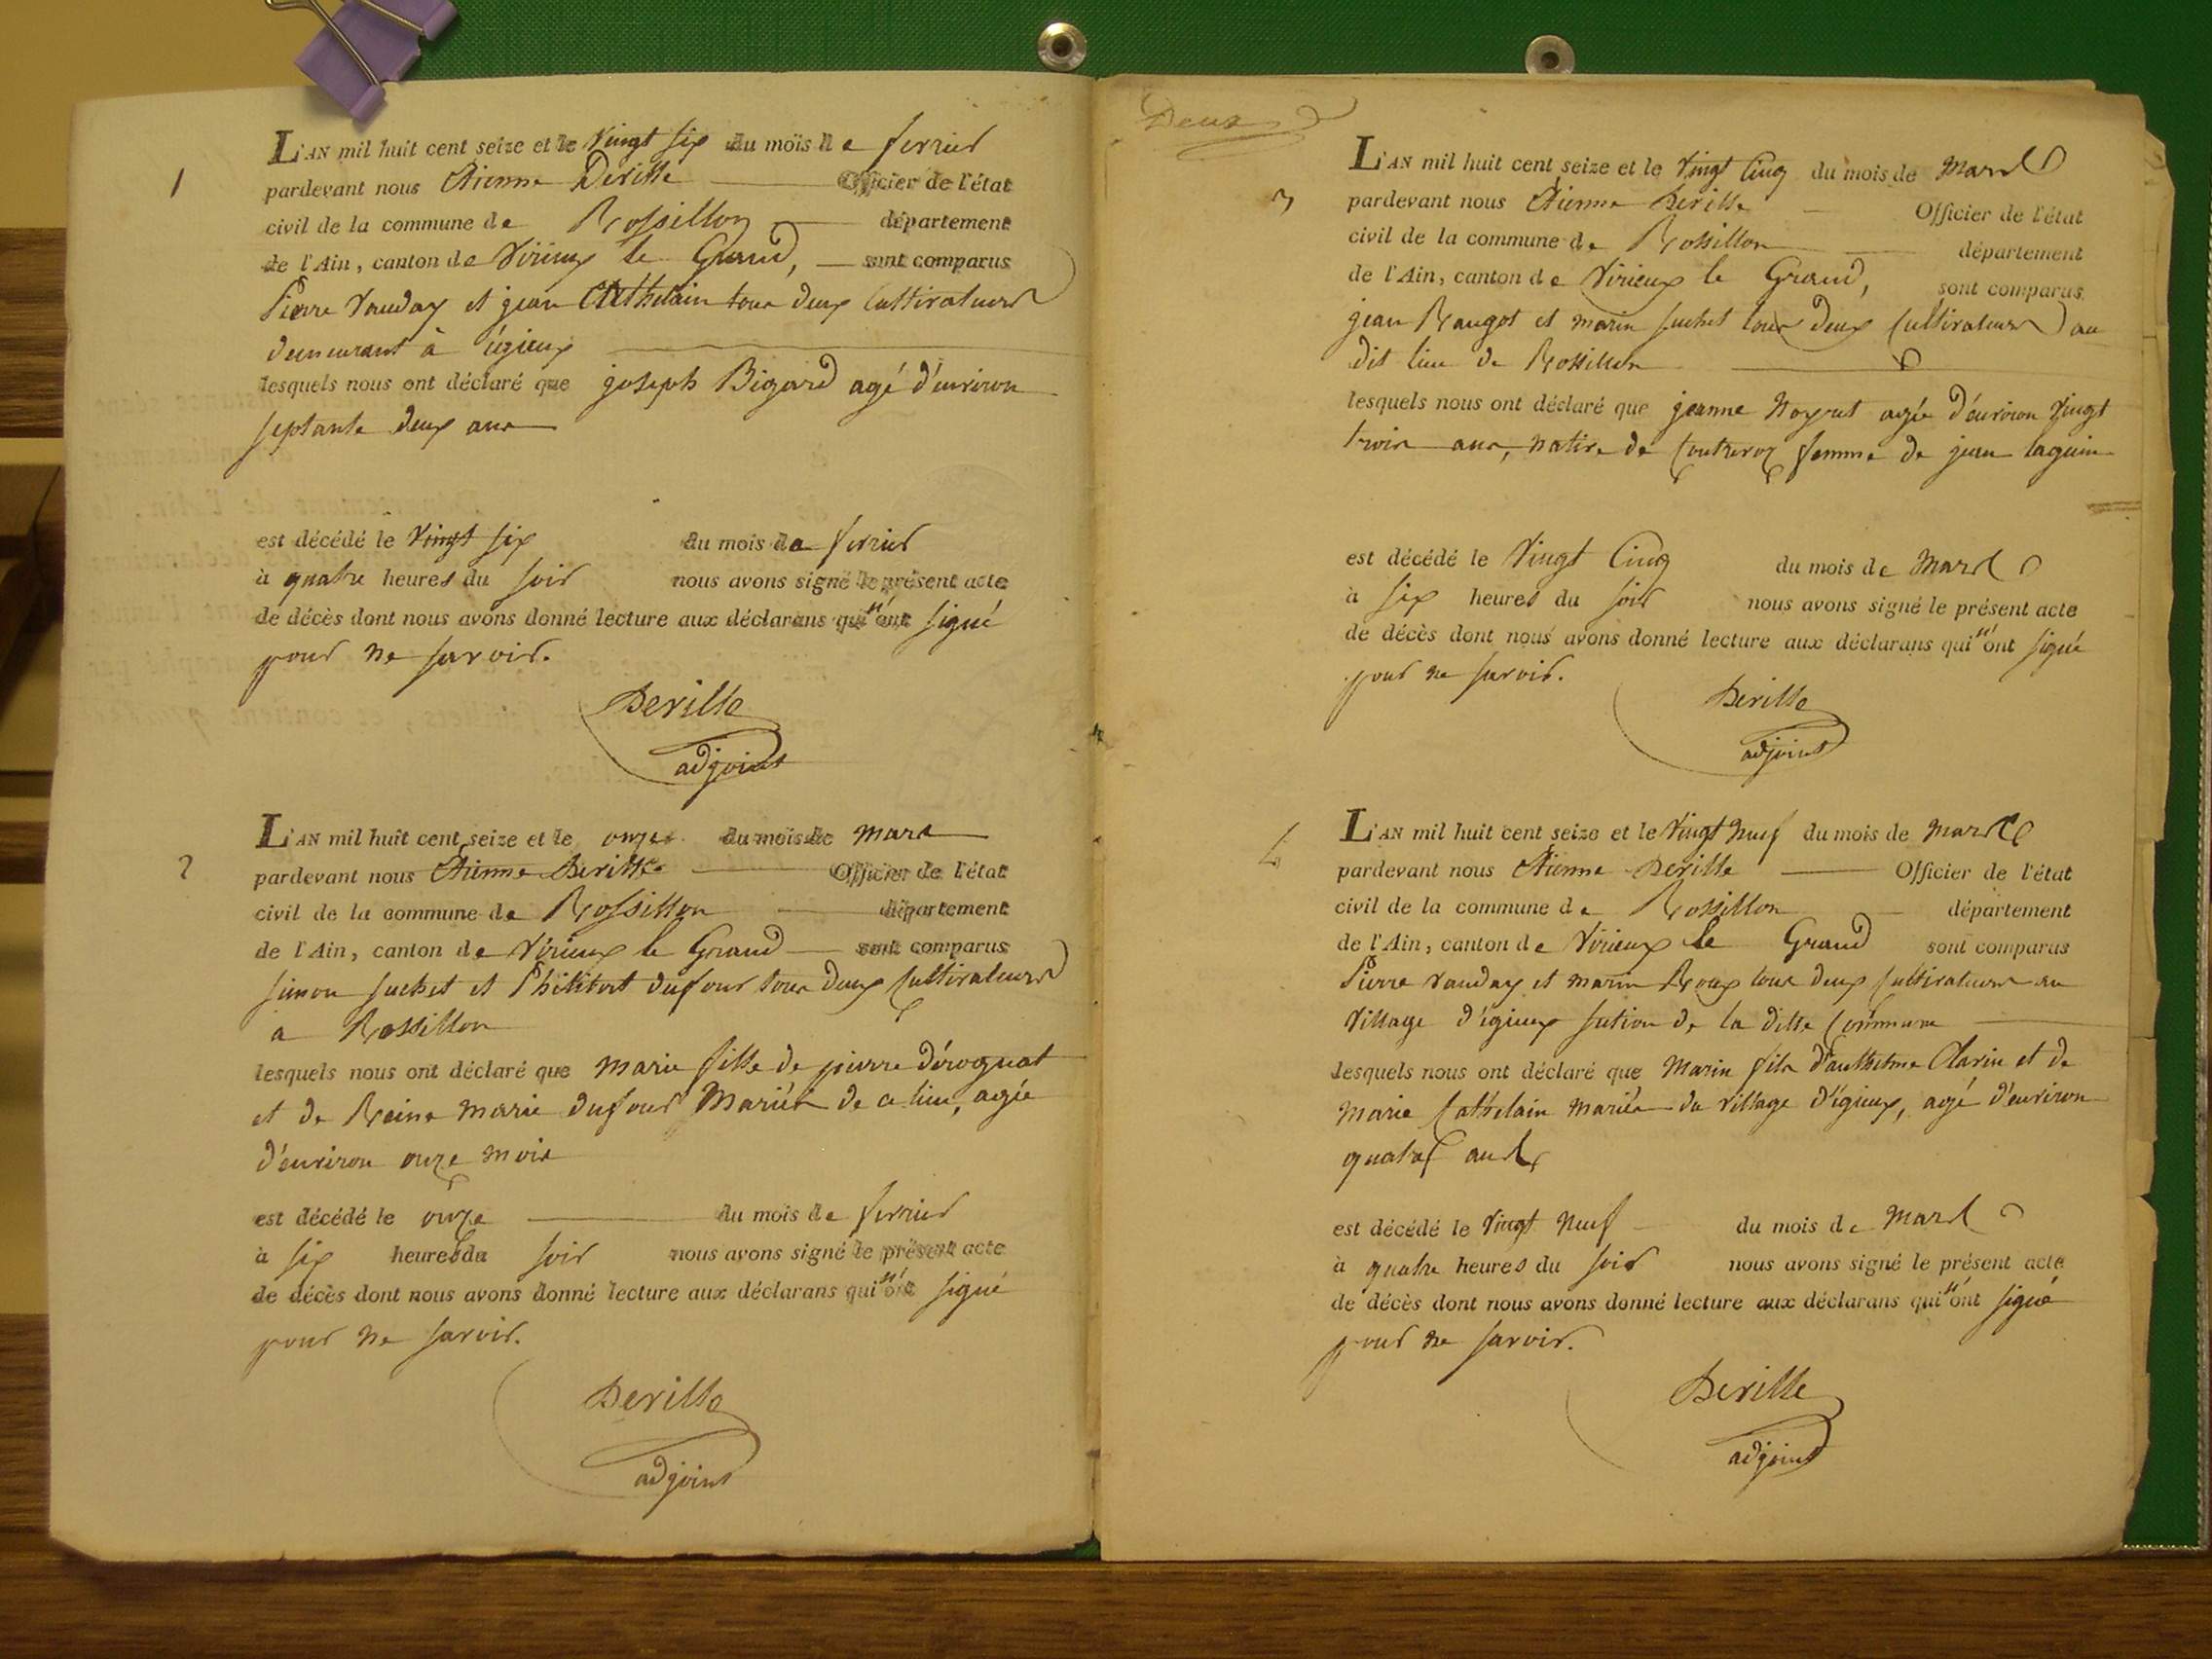 1
L'AN mil huit cent seize et le vingt six du mois de fevrier
pardevant nous Etienne Deville Officier de l'état
civil de la commune de Rossillon département
de l'Ain, canton de Virieux le Grand, sont comparus
Pierre Vauday et jean Cathelain tous deux Cultivateurs
demeurant à égieux
lesquels nous ont déclaré que joseph Bigard agé d'environ
septante deux ans
est décédé le vingt six du mois de fevrier
à quatre heures du soir nous avons signé le présent acte
de décès dont nous avons donné lecture aux déclarans qui n'ont signé
pour ne savoir.
Deville
adjoint
2
L'AN mil huit cent seize et le onze du mois de mars
pardevant nous Etienne Deville Officier de l'état
civil de la commune de Rossillon département
de l'Ain, canton de Virieux le Grand sont comparus
simon suchet et Philibert dufour tous deux Cultivateurs
a Rossillon
lesquels nous ont déclaré que marie fille de pierre dérognat
et de Reine marie dufour Mariés de ce lieu, agée
d'environ onze mois
est décédé le onze du mois de fevrier
à six heures du soir nous avons signé le présent acte
de décès dont nous avons donné lecture aux déclarans qui n'ont signé
pour ne savoir.
Deville
adjoint
Deux
3
L'AN mil huit cent seize et le vingt Cinq du mois de Mars
pardevant nous Etienne Deville Officier de l'état
civil de la commune de Rossillon département
de l'Ain, canton de Virieux le Grand, sont comparus
jean Raugot et marin suchet tous deux Cultivateurs au
dit lieu de Rossillon
lesquels nous ont déclaré que jeanne agée d'environ vingt
trois ans, native de femme de jean
est décédé le vingt Cinq du mois de Mars
à six heures du soir nous avons signé le présent acte
de décès dont nous avons donné lecture aux déclarans qui n'ont signé
pour ne savoir.
Deville
adjoint
4
L'AN mil huit cent seize et le vingt neuf du mois de Mars
pardevant nous Etienne Deville Officier de l'état
civil de la commune de Rossillon département
de l'Ain, canton de Virieux le Grand sont comparus
Pierre vauday et marin Roux tous deux Cultivateurs au
village d'égieux section de la ditte Commune
lesquels nous ont déclaré que Marin fils d'anthelme Clarin et de
marie Cathelain mariés du village d'égieux, agé d'environ
quatre ans
est décédé le vingt neuf du mois de Mars
à quatre heures du soir nous avons signé le présent acte
de décès dont nous avons donné lecture aux déclarans qui n'ont signé
pour ne savoir.
Deville
adjoint